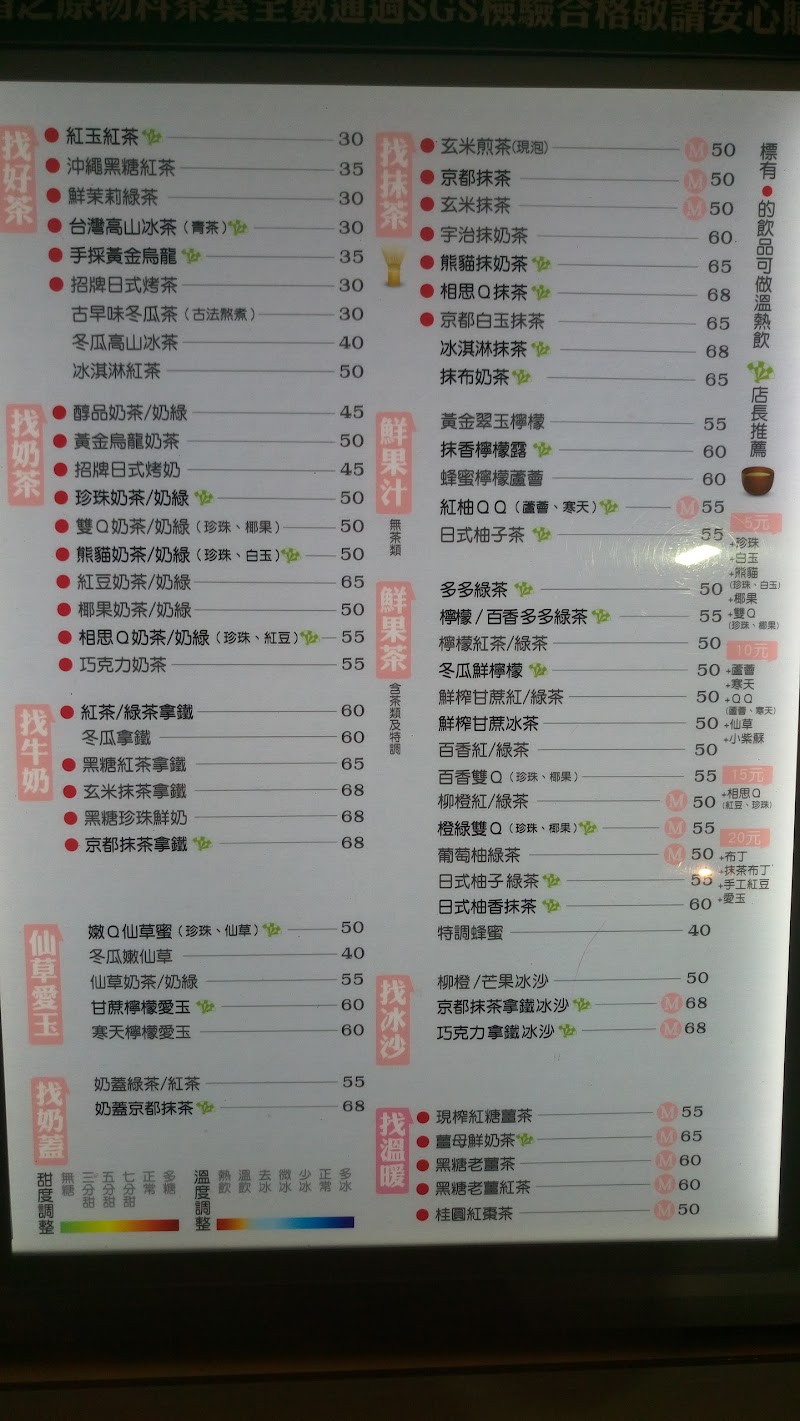 之原物料茶葉全數通過SGS檢驗合格敬請安心
找好茶
紅玉紅茶 30
沖繩黑糖紅茶 35
鮮茉莉綠茶 30
台灣高山冰茶(青茶) 30
手採黃金烏龍 35
招牌日式烤茶 30
古早味冬瓜茶(古法熬煮) 30
冬瓜高山冰茶 40
冰淇淋紅茶 50
找奶茶
醇品奶茶/奶綠 45
黃金烏龍奶茶 50
招牌日式烤奶 45
珍珠奶茶/奶綠 50
雙Q奶茶/奶綠(珍珠、椰果) 50
熊貓奶茶/奶綠(珍珠、白玉) 50
紅豆奶茶/奶綠 65
椰果奶茶/奶綠 50
相思Q奶茶/奶綠(珍珠、紅豆) 55
巧克力奶茶 55
找牛奶
紅茶/綠茶拿鐵 60
冬瓜拿鐵 60
黑糖紅茶拿鐵 65
玄米抹茶拿鐵 68
黑糖珍珠鮮奶 68
京都抹茶拿鐵 68
仙草愛玉
嫩Q仙草蜜(珍珠、仙草) 50
冬瓜嫩仙草 40
仙草奶茶/奶綠 55
甘蔗檸檬愛玉 60
寒天檸檬愛玉 60
找奶蓋
奶蓋綠茶/紅茶 55
奶蓋京都抹茶 68
甜度調整
無糖
三分甜
五分甜
七分甜
正常
多糖
溫度調整
熱飲
溫飲
去冰
微冰
少冰
正常
多冰
找抹茶
玄米煎茶(現泡) M 50
京都抹茶 M 50
玄米抹茶 M 50
宇治抹奶茶 60
熊貓抹奶茶 65
相思Q抹茶 68
京都白玉抹茶 65
冰淇淋抹茶 68
抹布奶茶 65
鮮果汁
無茶類
黃金翠玉檸檬 55
抹香檸檬露 60
蜂蜜檸檬蘆薈 60
紅柚QQ(蘆薈、寒天) M 55
日式柚子茶 55
鮮果茶
含茶類及特調
多多綠茶 50
檸檬/百香多多綠茶 55
檸檬紅茶/綠茶 50
冬瓜鮮檸檬 50
鮮榨甘蔗紅/綠茶 50
鮮榨甘蔗冰茶 50
百香紅/綠茶 50
百香雙Q(珍珠、椰果) 55
柳橙紅/綠茶 M 50
橙綠雙Q(珍珠、椰果) M 55
葡萄柚綠茶 M 50
日式柚子綠茶 55
日式柚香抹茶 60
特調蜂蜜 40
找冰沙
柳橙/芒果冰沙 50
京都抹茶拿鐵冰沙 M 68
巧克力拿鐵冰沙 M 68
找溫暖
現榨紅糖薑茶 M 55
薑母鮮奶茶 M 65
黑糖老薑茶 M 60
黑糖老薑紅茶 M 60
桂圓紅棗茶 M 50
標有●的飲品可做溫熱飲
店長推薦
5元
+珍珠
+白玉
+熊貓
(珍珠、白玉)
+椰果
+雙Q
(珍珠、椰果)
10元
+蘆薈
+寒天
+QQ
(蘆薈、寒天)
+仙草
+小紫蘇
15元
+相思Q
(紅豆、珍珠)
20元
+布丁
+抹茶布丁
+手工紅豆
+愛玉